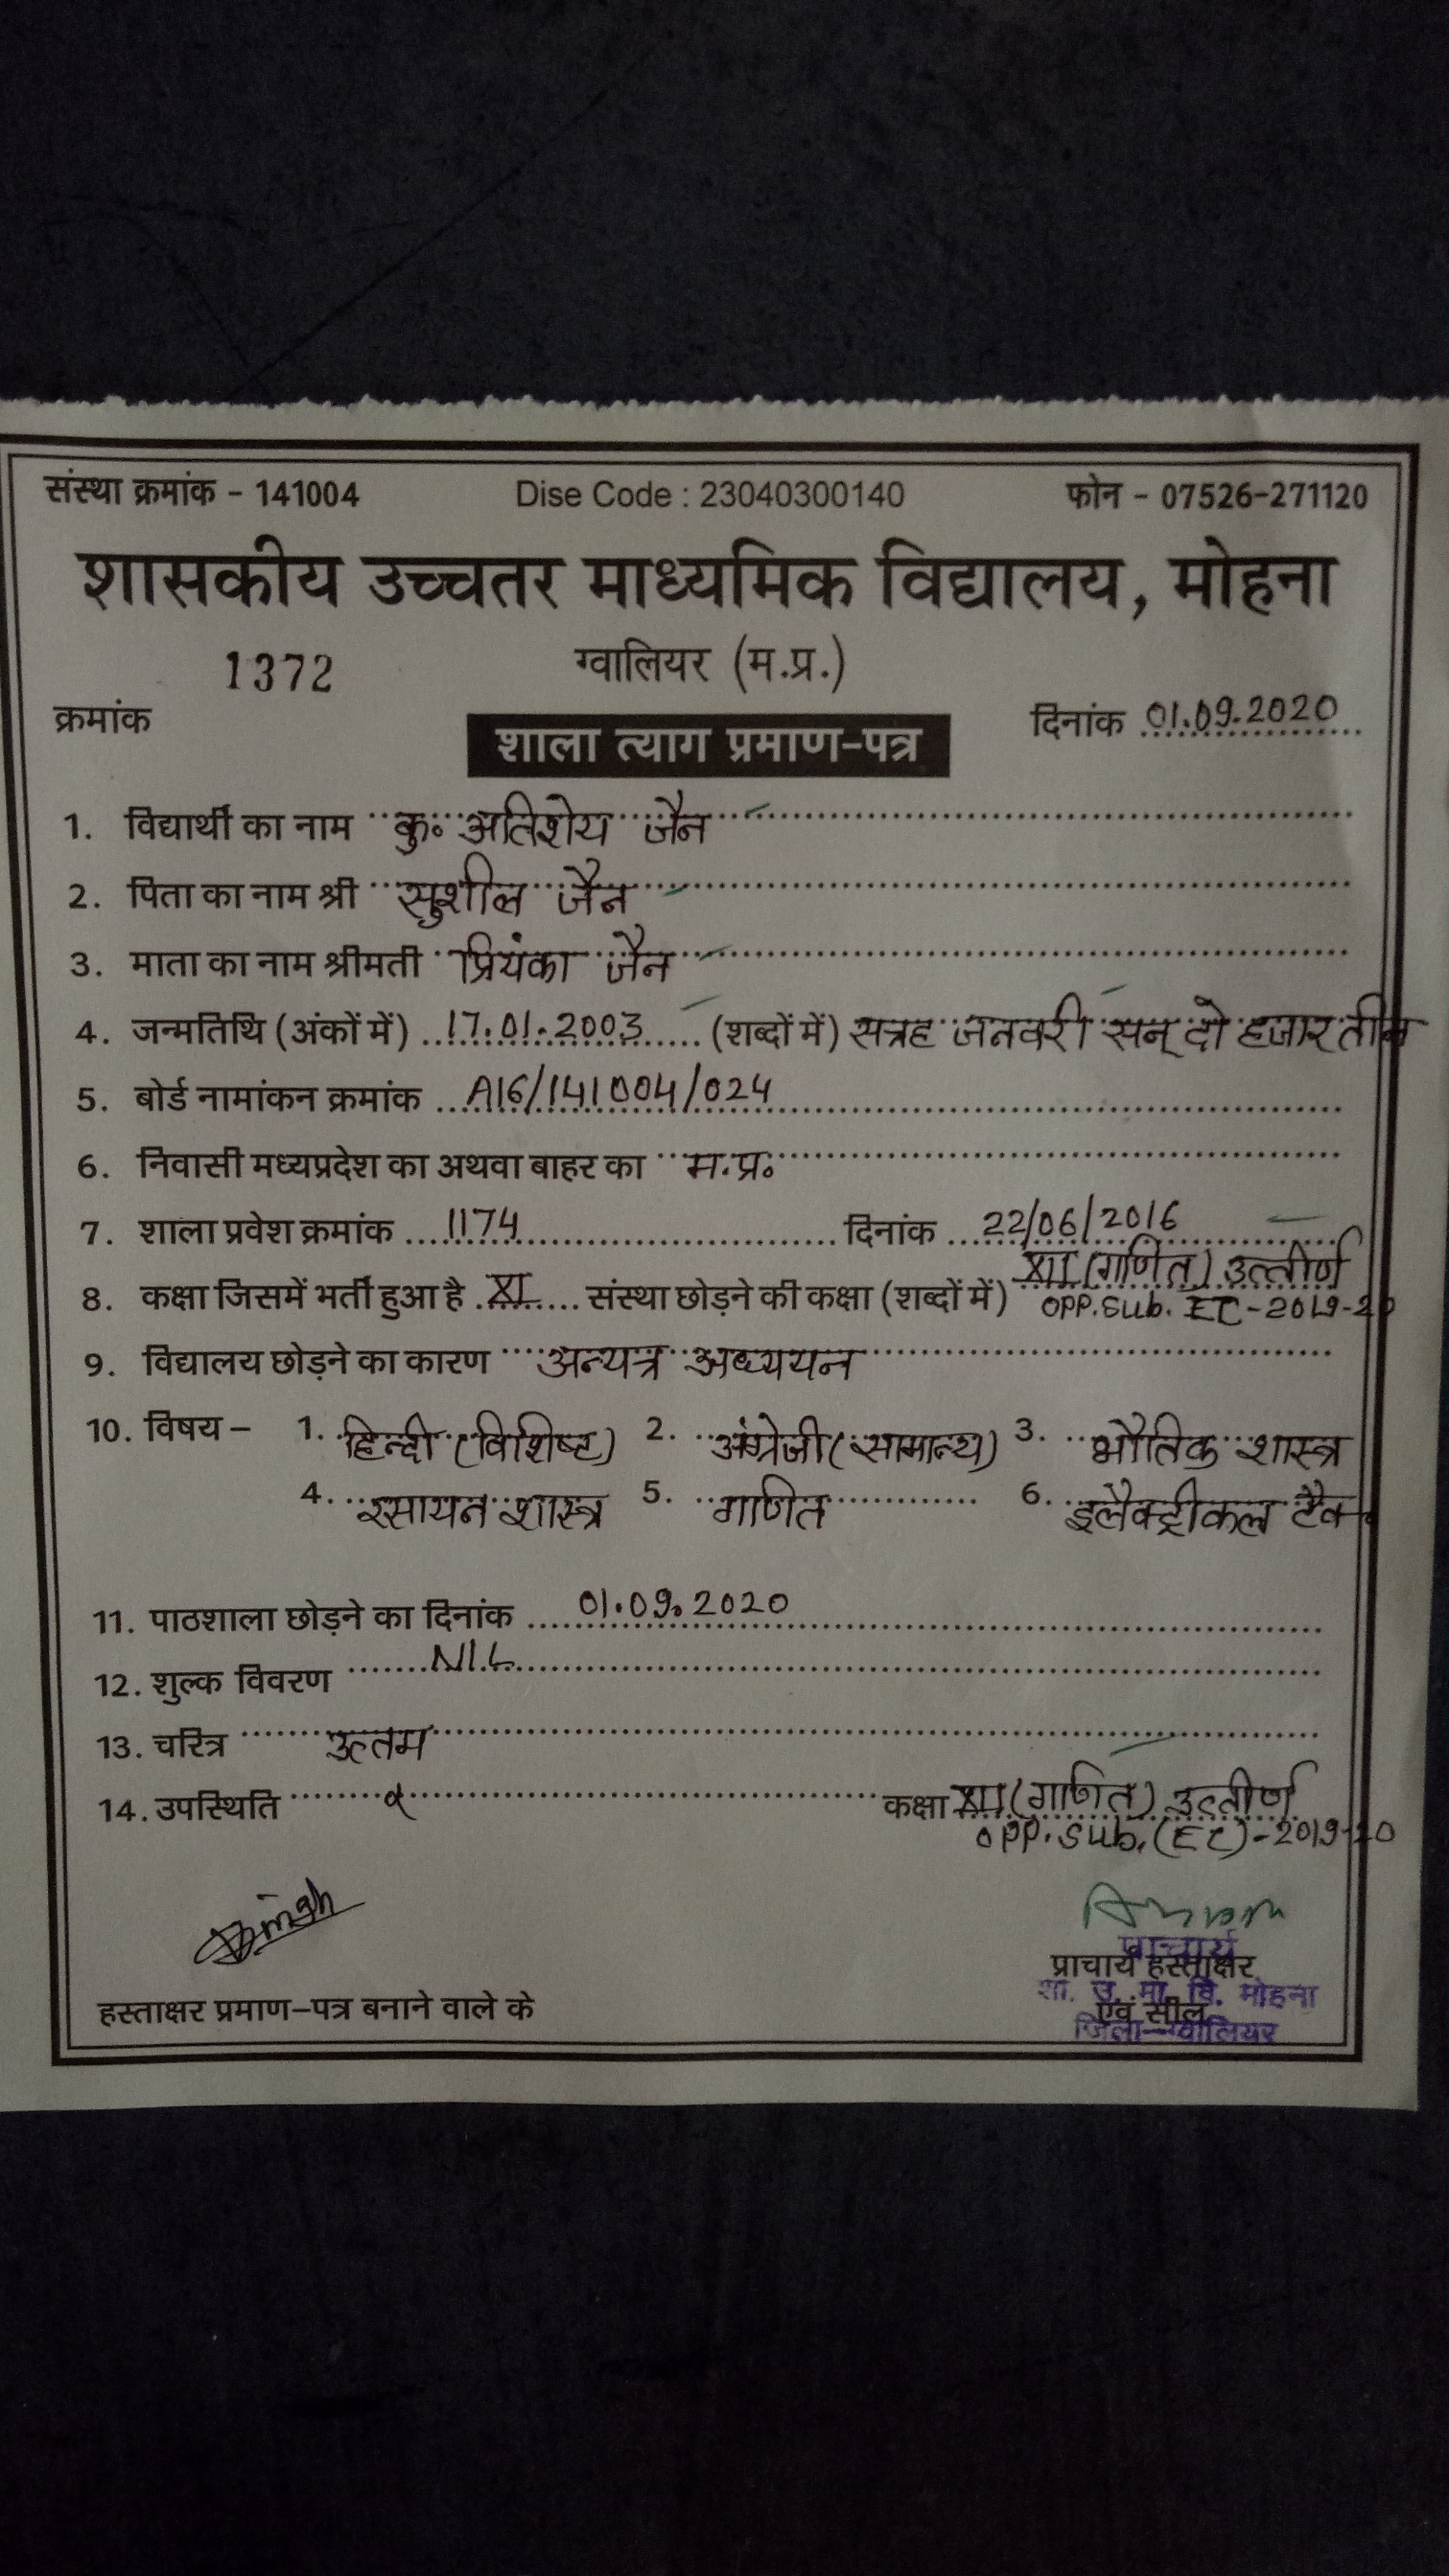 संस्था क्रमांक - 141004 Dise Code : 23040300140 फोन - 07526-271120
शासकीय उच्चतर माध्यमिक विद्यालय, मोहना
1372 ग्वालियर (म.प्र.)
क्रमांक दिनांक 01.09.2020
शाला त्याग प्रमाण-पत्र
1. विद्यार्थी का नाम कु० अतिशेय जैन
2. पिता का नाम श्री सुशील जैन
3. माता का नाम श्रीमती प्रियंका जैन
4. जन्मतिथि (अंकों में) 17.01.2003 (शब्दों में) सत्रह जनवरी सन् दो हजार तीन
5. बोर्ड नामांकन क्रमांक A16/141004/024
6. निवासी मध्यप्रदेश का अथवा बाहर का म.प्र.
7. शाला प्रवेश क्रमांक 1174 दिनांक 22/06/2016
8. कक्षा जिसमें भर्ती हुआ है XI संस्था छोड़ने की कक्षा (शब्दों में) XII (गणित) उत्तीर्ण
opp. sub. EC-2019-20
9. विद्यालय छोड़ने का कारण अन्यत्र अध्ययन
10. विषय – 1. हिन्दी (विशिष्ट) 2. अंग्रेजी (सामान्य) 3. भौतिक शास्त्र
4. रसायन शास्त्र 5. गणित 6. इलैक्ट्रीकल टैक
11. पाठशाला छोड़ने का दिनांक 01.09.2020
12. शुल्क विवरण NIL
13. चरित्र उत्तम
14. उपस्थिति कक्षा XII (गणित) उत्तीर्ण
opp. sub. (EC)-2019-20
प्राचार्य
प्राचार्य हस्ताक्षर
शा. उ. मा. वि. मोहना
हस्ताक्षर प्रमाण-पत्र बनाने वाले के एवं सील
जिला-ग्वालियर